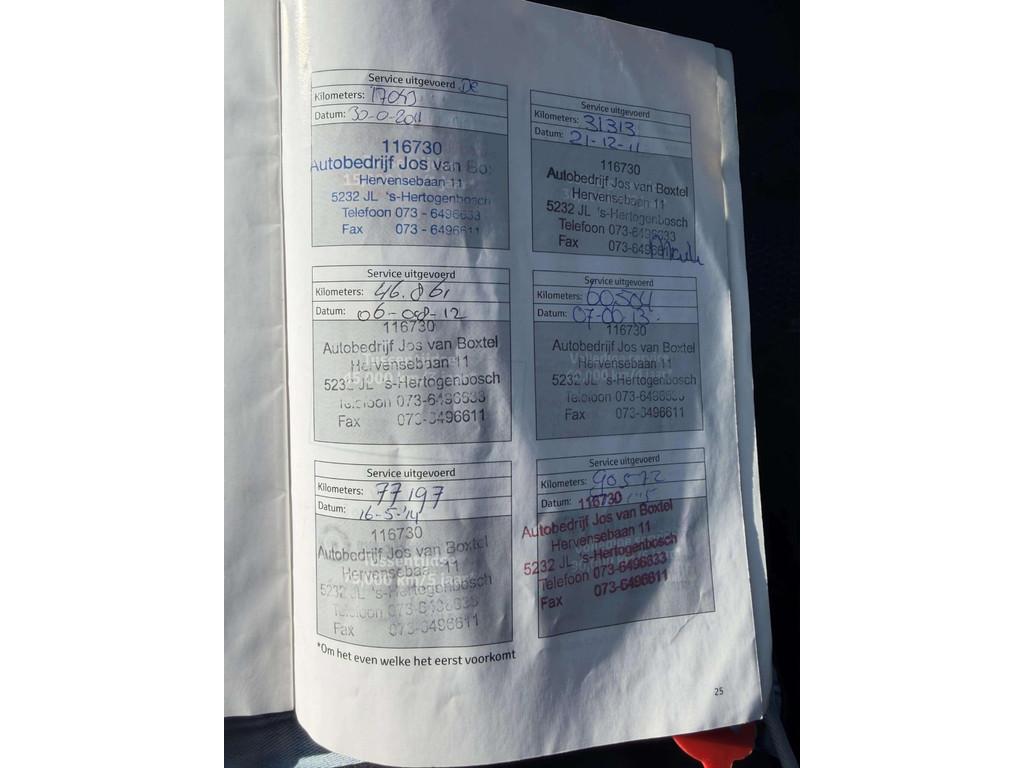 Service uitgevoerd DE
Kilometers: 17043
Datum:
116730
Autobedrijf Jos van Bo
Hervensebaan 11
5232 JL 's-Hertogenbosch
Telefoon 073 - 6496633
Fax 073 - 6496611
Service uitgevoerd
Kilometers: 31313
Datum: 21-12-11
116730
Autobedrijf Jos van Boxtel
Hervensebaan 11
5232 JL 's-Hertogenbosch
Telefoon 073-6496633
Fax
Service uitgevoerd
Kilometers: 46.861
Datum: 06-08-12
116730
Autobedrijf Jos van Boxtel
Hervensebaan 11
5232 JL 's-Hertogenbosch
Telefoon 073-6496633
Fax 073-6496611
Service uitgevoerd
Kilometers: 60504
Datum: 07-06-13.
116730
Autobedrijf Jos van Boxtel
Hervensebaan 11
5232 JL 's-Hertogenbosch
Telefoon 073-6496633
Fax 073-6496611
Service uitgevoerd
Kilometers: 77197
Datum: 16-5-'14
116730
Autobedrijf Jos van Boxtel
Tussentijds
Hervensebaan 11
75,000 km/5 jaar
5232 JL 's-Hertogenbosch
Telefoon 073-6496633
Fax 073-6496611
Service uitgevoerd
Kilometers: 90572
Datum:
116730
Autobedrijf Jos van Boxtel
Hervensebaan 11
5232 JL 's-Hertogenbosch
Telefoon 073-6496633
Fax 073-6496611
*Om het even welke het eerst voorkomt
25